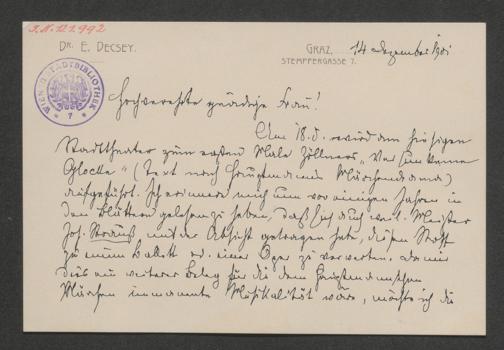 J.N. 121.992
DR. E. DECSEY.
GRAZ, 14 Dezember 1901
STEMPFERGASSE 7.
WIENER STADTBIBLIOTHEK
Hochverehrte gnädige Frau!
Am 18. d. wird am hiesigen
Stadttheater zum ersten Male Zöllners „Die versunkene
Glocke“ (Text nach Hauptmanns Märchendrama)
aufgeführt. Ich erinnere mich nun vor einigen Jahren in
den Blättern gelesen zu haben, daß sich auch Meister
Joh. Strauß mit der Absicht getragen habe, diesen Stoff
zu einem Ballett od. einer Oper zu verwerten. Da mir
dies ein weiterer Beleg für die dem Hauptmannschen
Märchen immanente Musikalität wäre, möchte ich die